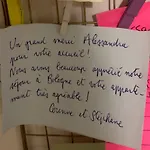 Un grand merci Alessandra
pour votre accueil !
Nous avons beaucoup apprécié notre
séjour à Bologne et votre apparte-
ment très agréable !
Corinne et Stéphane